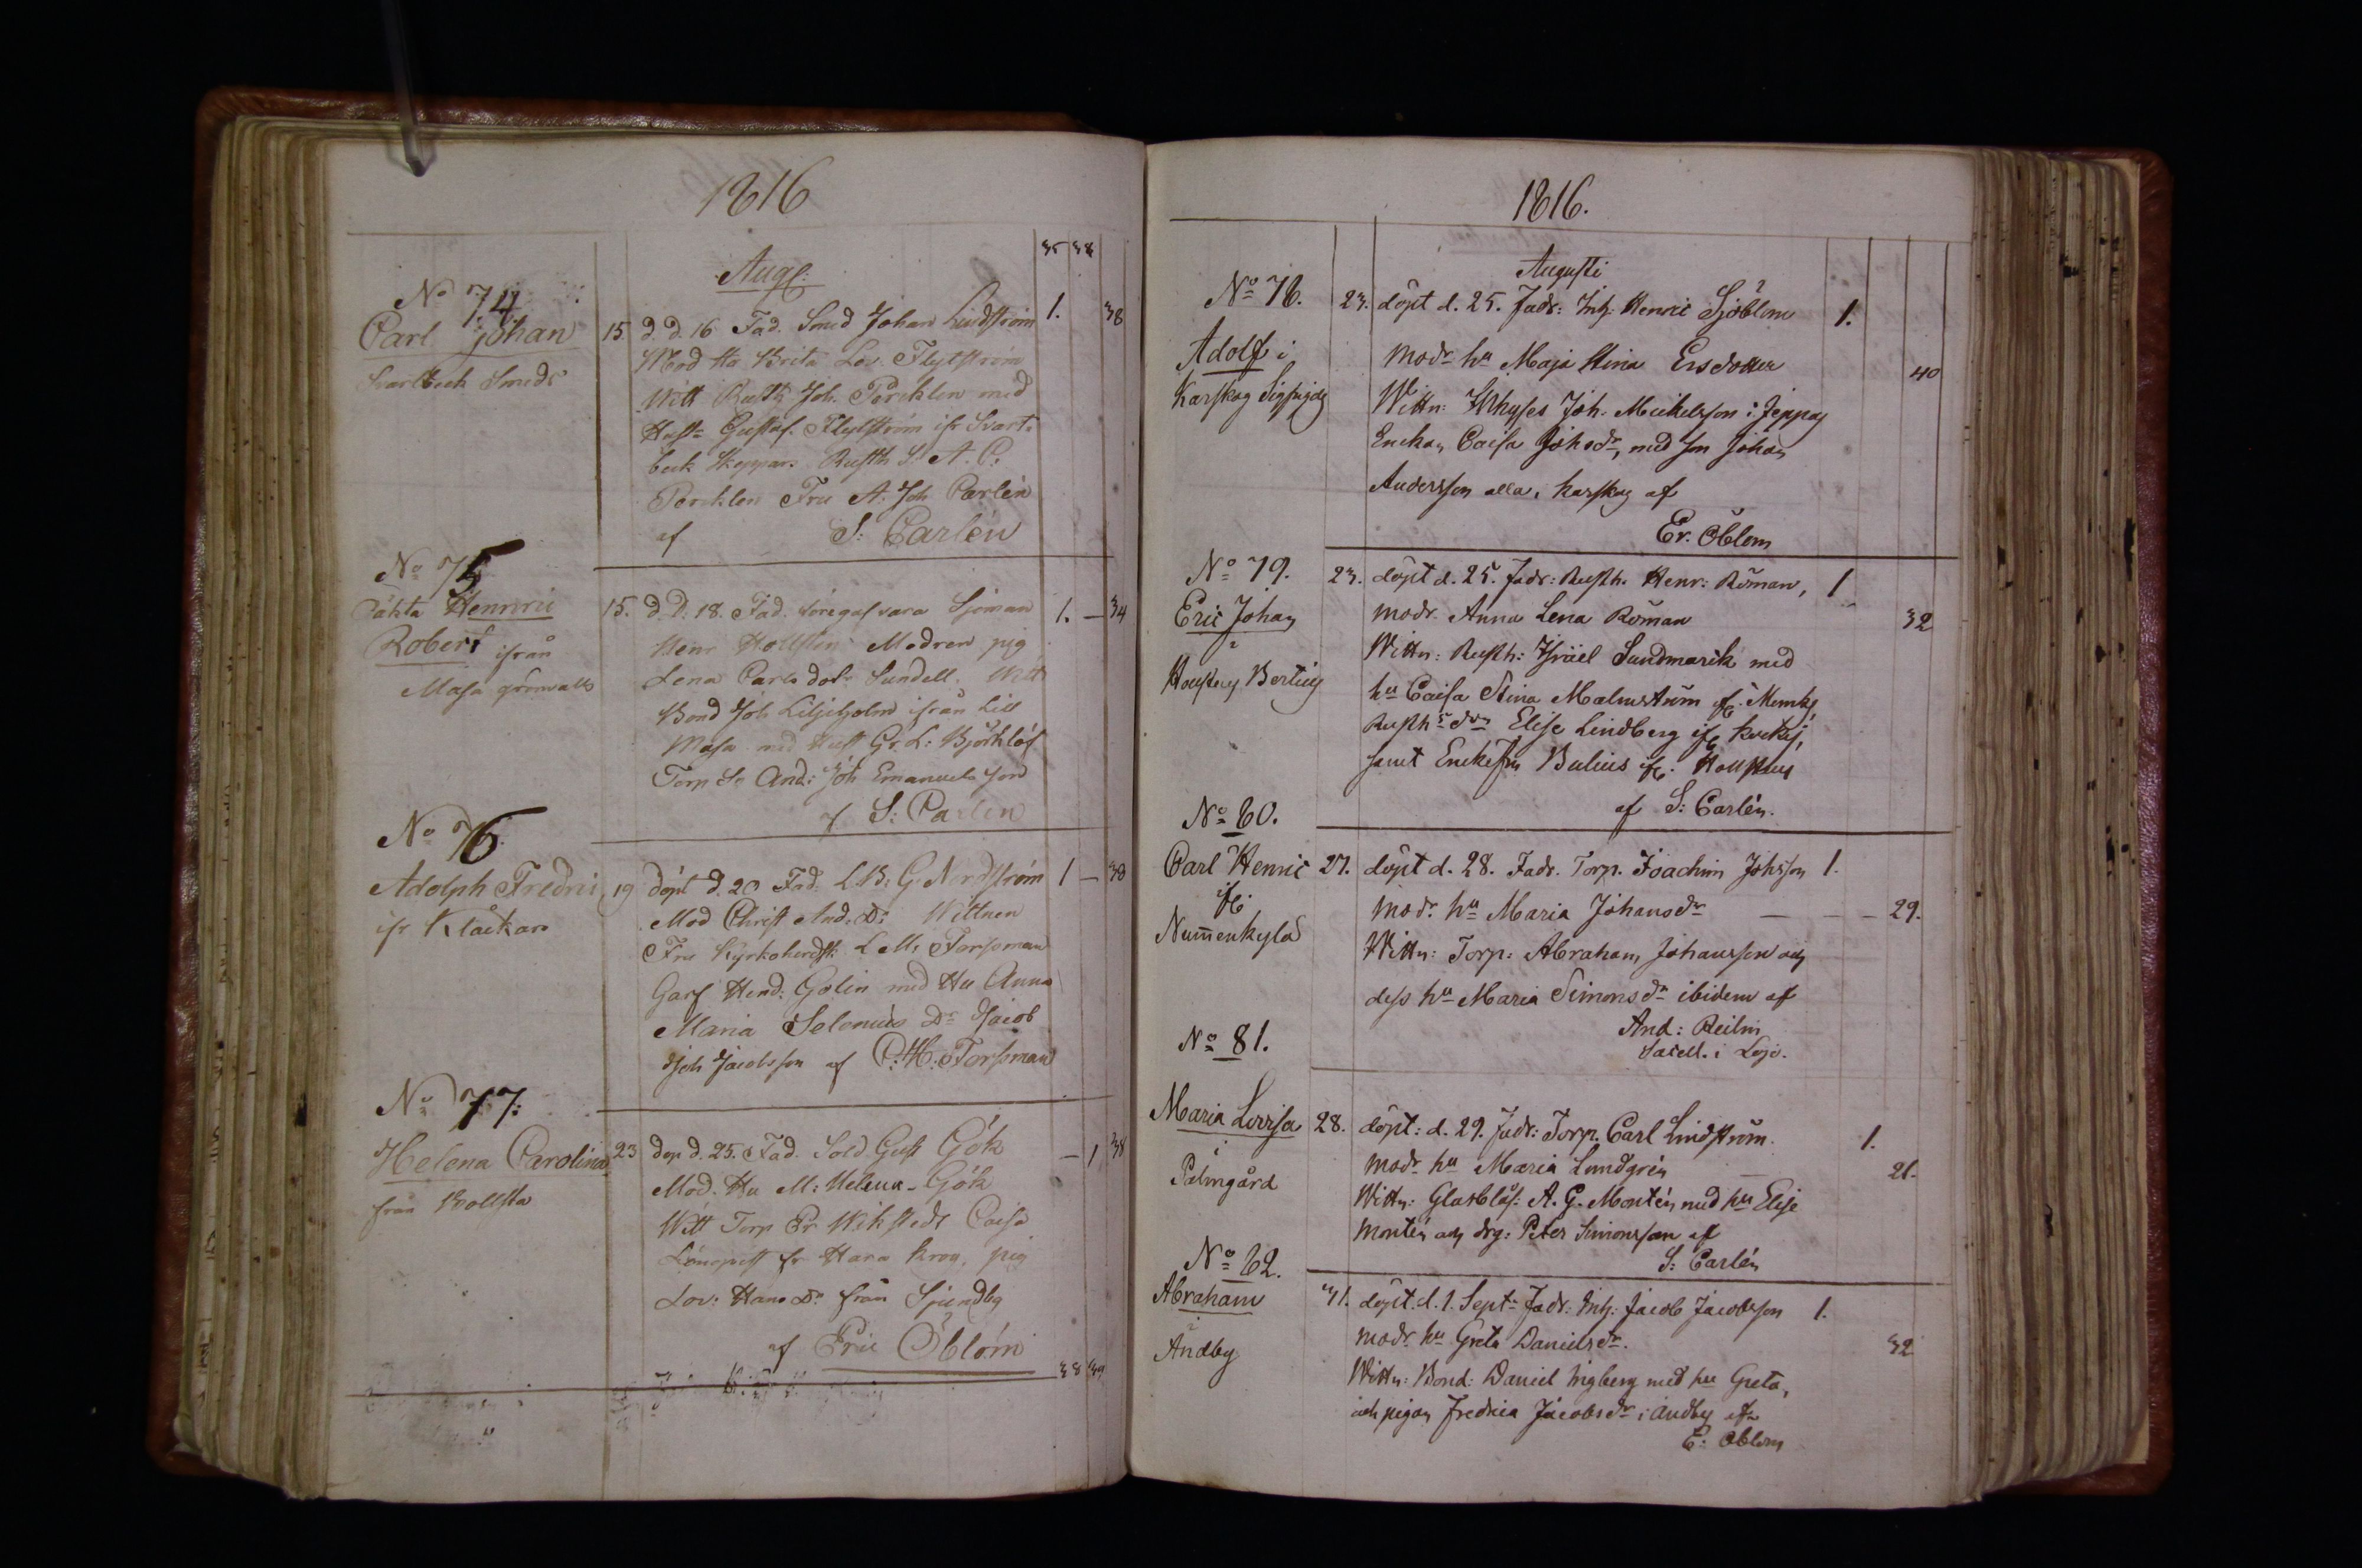 1816
Augt:
35 38
No 74
Carl Johan
Svartbeck Smeds
15. d. D. 16 Fad. Smed Johan Lindström 1. 38
Mod Hu Brita Lov. Flytström
Witt Rusth Joh. Porthlen med
Hust: Gustaf. Flytström ifr Svart-
beck Skeppar. Rusth S. A. C:
Porthlen Fru A. Joh Carlén
af S: Carlén
No 75
Oäkta Hennric
Robert ifrån
Masa grönvalls
15. d. D. 18. Fad. föregaf vara Sjöman 1. — 34
Henr Hollsten Modren pig
Lena Carlsdotr Sundell. Witt
Bond Joh Liljeholm ifrån Lill
Masa med Hust Gr. L: Björklöf
Torp So And: Joh Emanuelsson
af S: Carlén
No 76
Adolph Fredric
ifr Klåckars
19 döpt d. 20 Fad. L.B: G Nordström 1 — 38
Mod Christ And. Dr Wittnen
Fru Kyrkoherdsk. L M: Forsman
Garf Hend: Golin med Hu Anna
Maria Selenius Dr Jacob
Joh Jacobsson af C. H. Forsman
No 77:
Helena Carolina
från Bollsta
23 dop d. 25. Fad. Sold Gust Gök — 1 38
Mod. Hu M: Helena Gök
Witt Torp Er Wikstedt Caisa
Lönqvist fr Hara krog, pig
Lov: Hans Dr från Sjundby
af Eric Öblom
38 39
1816.
Augusti
No 78.
Adolf i
Karskog Sigfrids
23. döpt d. 25. Fadr: Inh: Henric Sjöblom 1.
Modr hu Maja Stina Ersdotter 40
Wittn: Inhyses Joh. Mickelsson i Jeppas
Enckan Caisa Johsdr, med son Johan
Andersson alla i Karskog af
Er. Öblom
No 79.
Eric Johan
i
Houstens Bertils
23. döpt d. 25. Fadr: Rusth. Henr: Roman, 1
modr. Anna Lena Roman 32
Wittn: Rusth: Israel Sundmark med
hu Caisa Stina Malmström ifr. Munks
Rusth: dr Elise Lindberg ifr
samt Enkefru Bulius ifr.
af S: Carlén.
No 80.
Carl Henric
ifr.
Nummenkylä
27. döpt d. 28. Fadr. Torp. Joachim Johsson 1.
Modr. hu Maria Johansdr — — — 29.
Wittn: Torp: Abraham Johansson och
dess hu Maria Simonsdr ibidem af
And: Reilin
Sacell. i Lojo.
No 81.
Maria Lovisa
i
Palmgård
28. döpt: d. 29. Fadr: Torp. Carl Lindström. 1.
Modr hu Maria Lundgrén — 21.
Wittn: Glasblås: A. G. Montén med hu Elise
Montén och drg: Peter Simonsson af
S: Carlén
No 82.
Abraham
i
Andby
31. döpt: d. 1. Sept: Fadr. Inh: Jacob Jacobsson 1.
Modr hu Greta Danielsdr. 32
Wittn: Bond: Daniel Wigberg med hu Greta,
och pigan Fredrica Jacobsdr i Andby af
E: Öblom